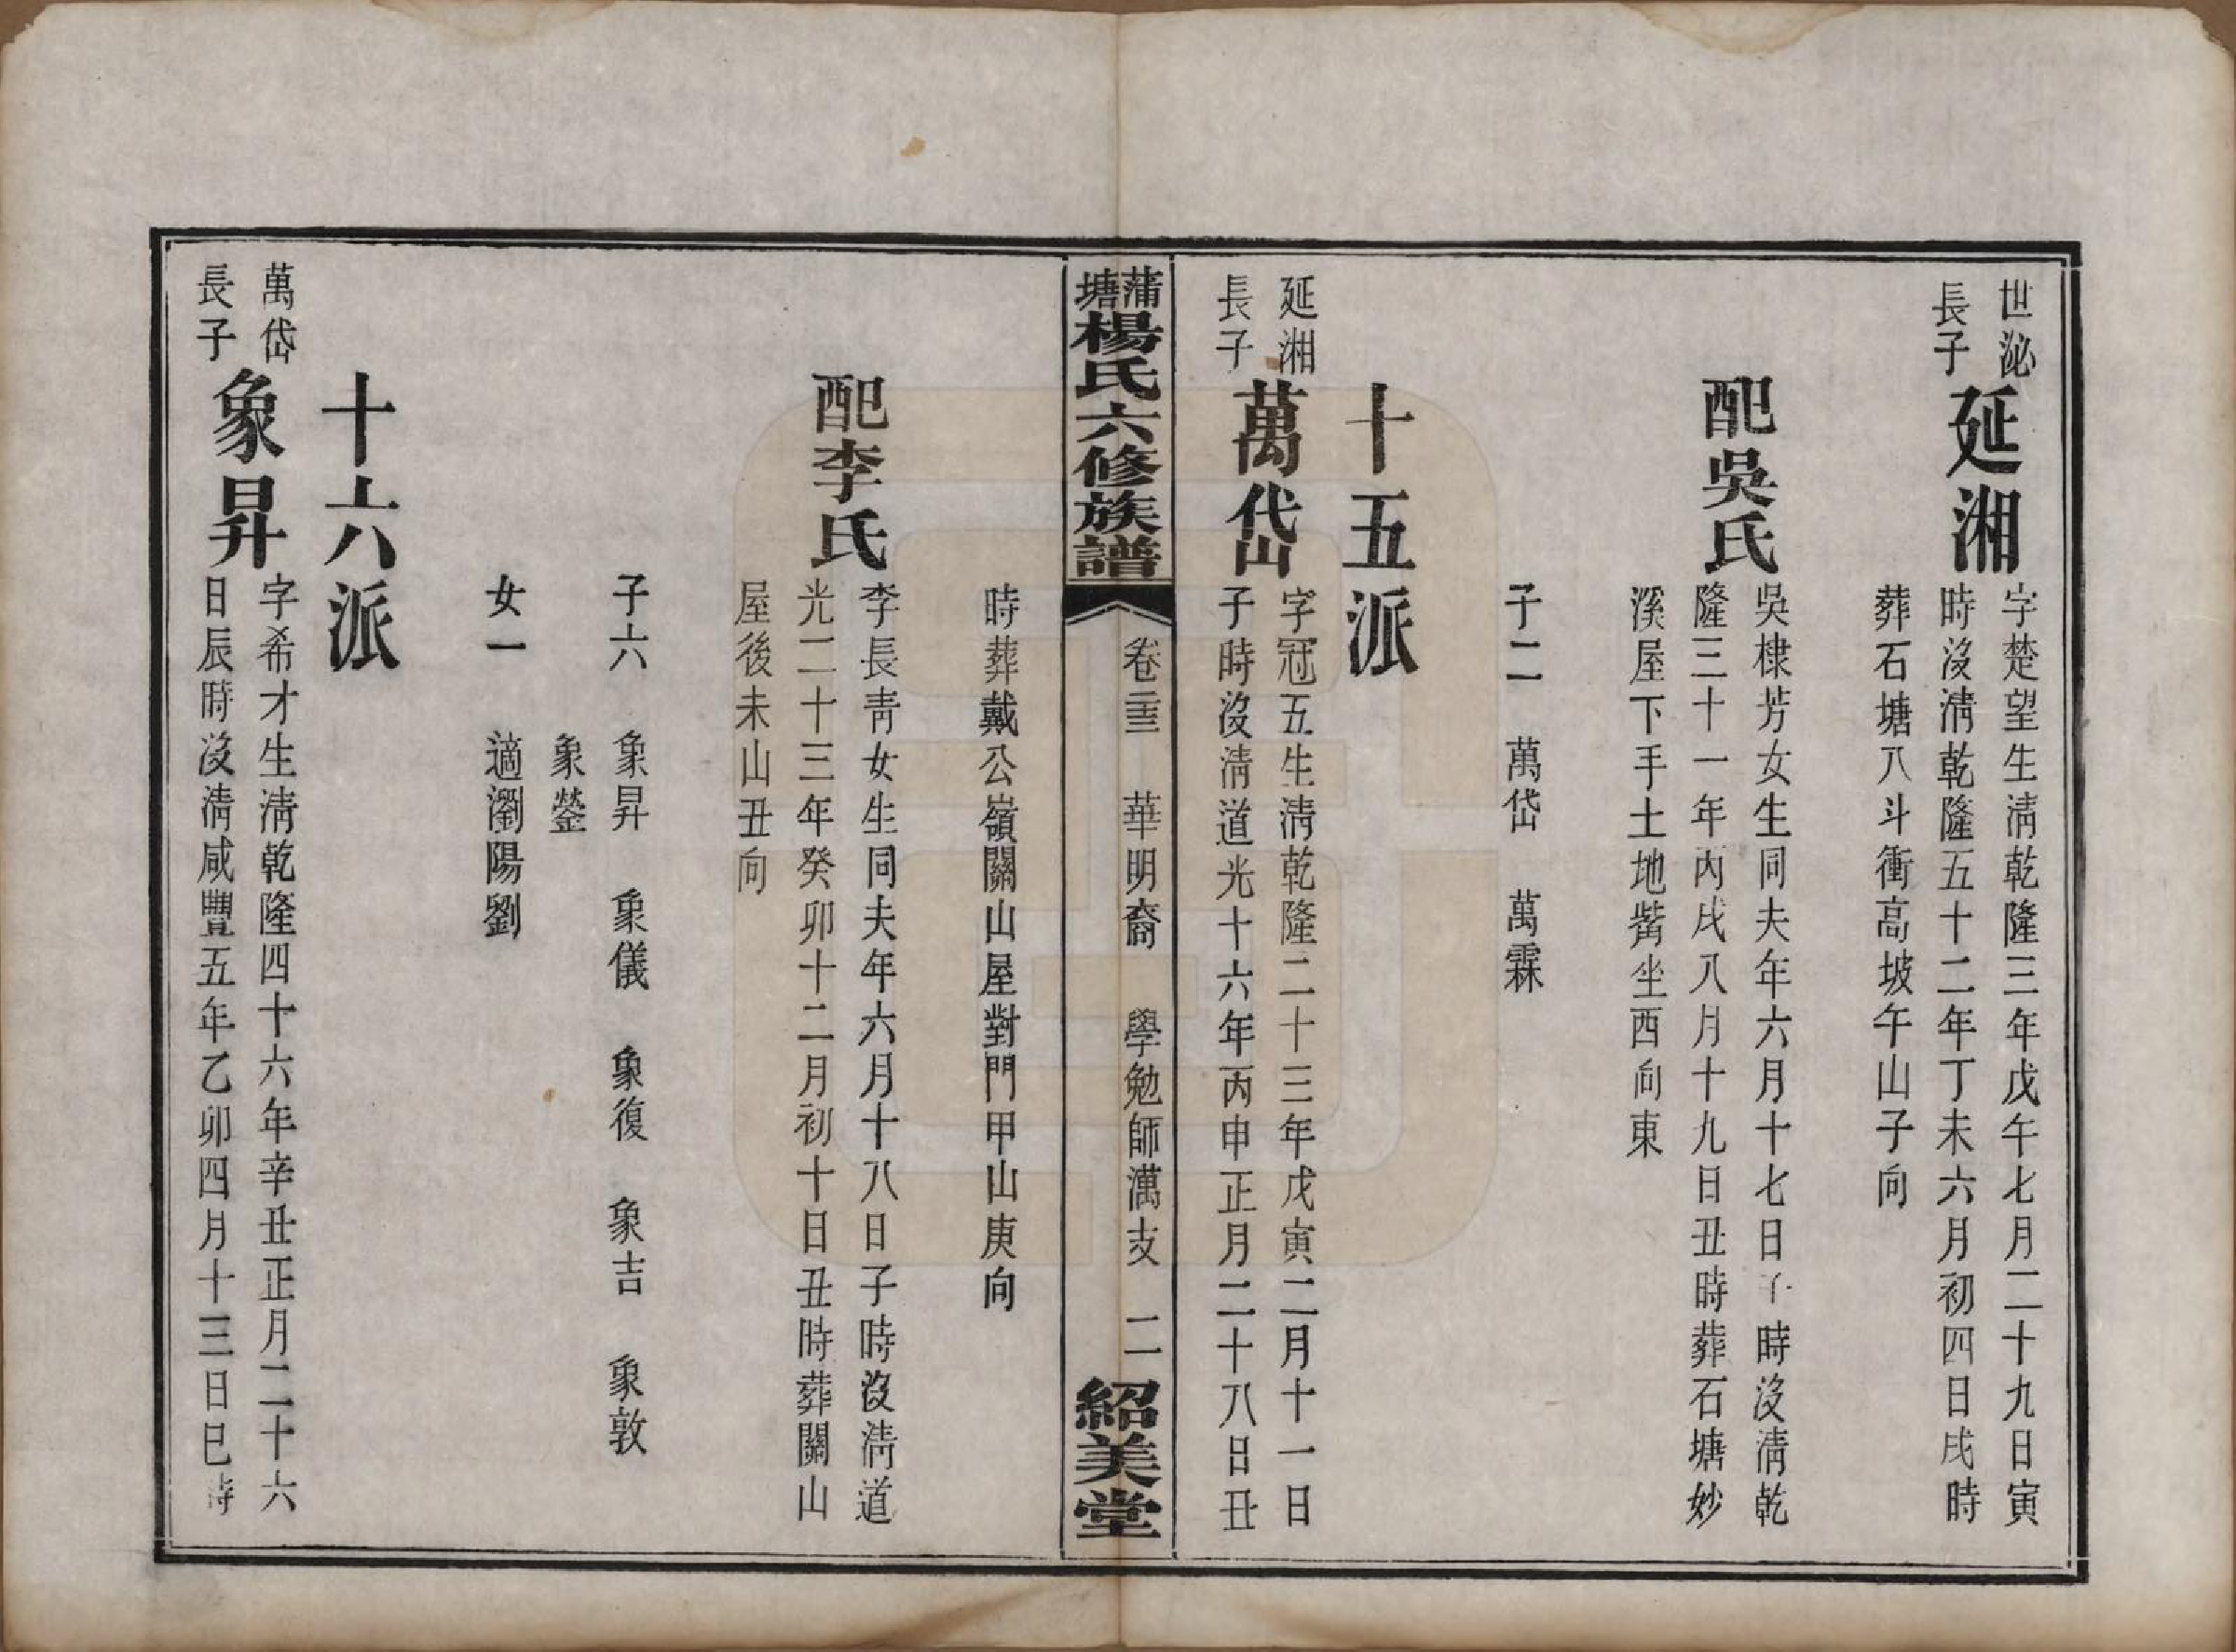 世泌
長子
延湘
字楚望生淸乾隆三年戊午七月二十九日寅
時沒淸乾隆五十二年丁未六月初四日戌時
葬石塘八斗衝高坡午山子向
配吳氏
吳棣芳女生同夫年六月十七日子時沒淸乾
隆三十一年丙戌八月十九日丑時葬石塘妙
溪屋下手土地觜坐西向東
子二　萬岱　萬霖
十五派
延湘
長子
萬岱
字冠五生淸乾隆二十三年戊寅二月十一日
子時沒淸道光十六年丙申正月二十八日丑
蒲塘楊氏六修族譜
卷三十三　華明裔　學勉師澫支　二
紹美堂
時葬戴公嶺關山屋對門甲山庚向
配李氏
李長靑女生同夫年六月十八日子時沒淸道
光二十三年癸卯十二月初十日丑時葬關山
屋後未山丑向
子六　象昇　象儀　象復　象吉　象敦
象鎣
女一　適瀏陽劉
十六派
萬岱
長子
象昇
字希才生淸乾隆四十六年辛丑正月二十六
日辰時沒淸咸豐五年乙卯四月十三日巳時